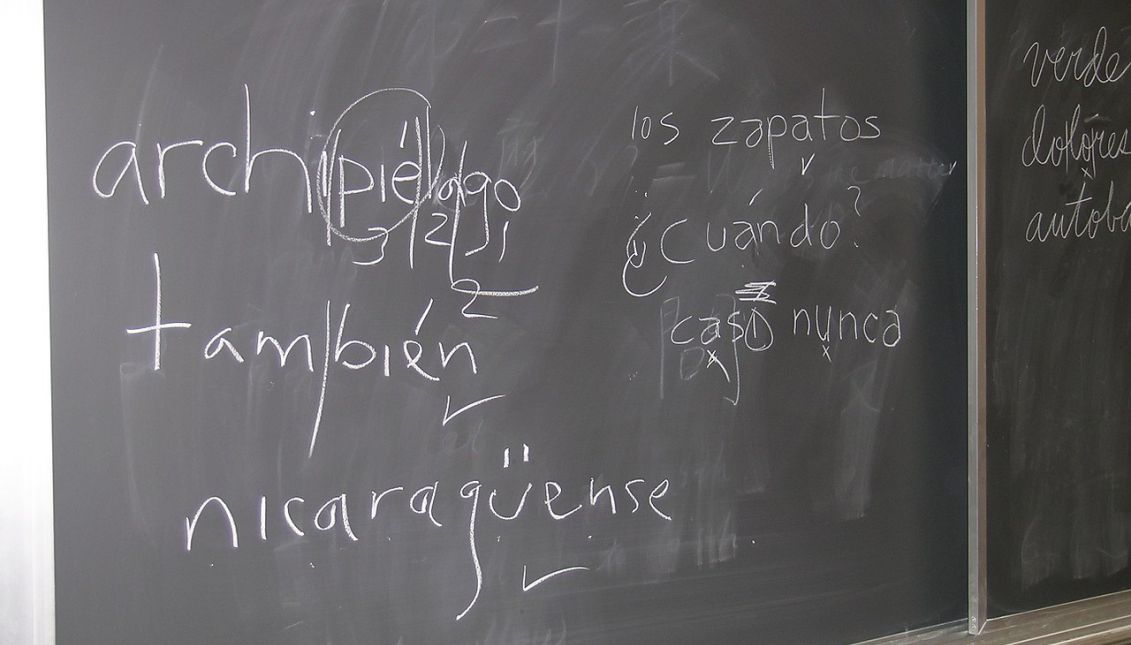 archipiélago
3 2 1
2
también
nicaragüense
los zapatos
¿Cuándo?
casi nunca
verde
dolores
autobú